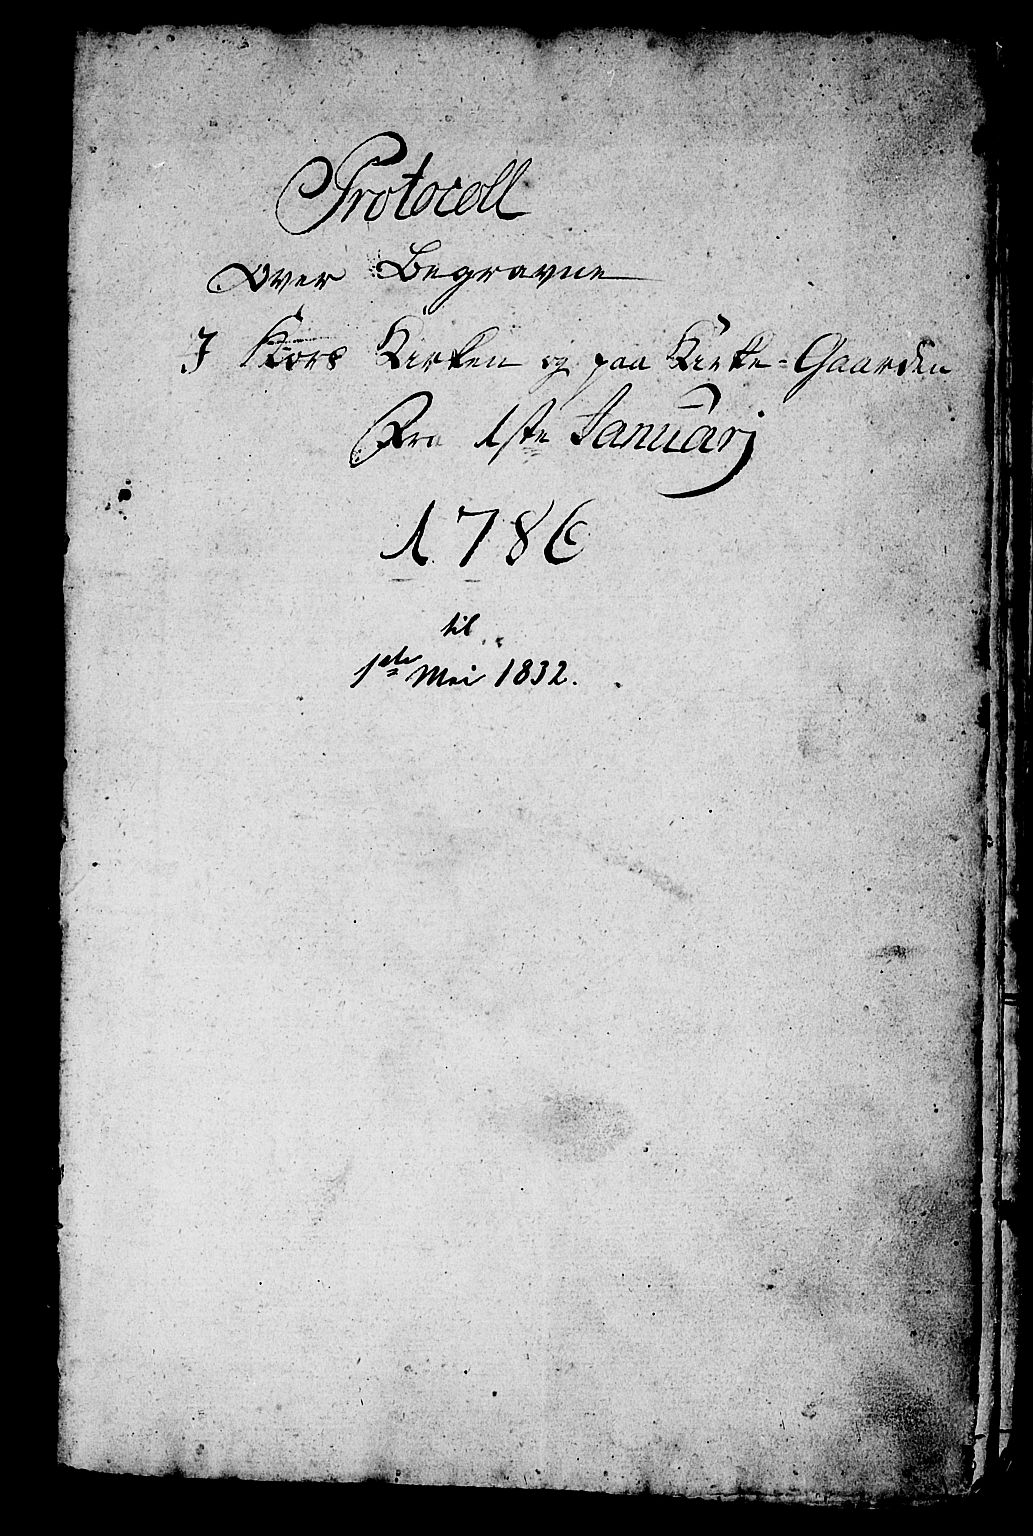 Protocoll
Over Begravne
I Kors Kirken og paa Kirke=Gaarden
Fra 1ste Januarj
1786
til
1ste Mai 1832.